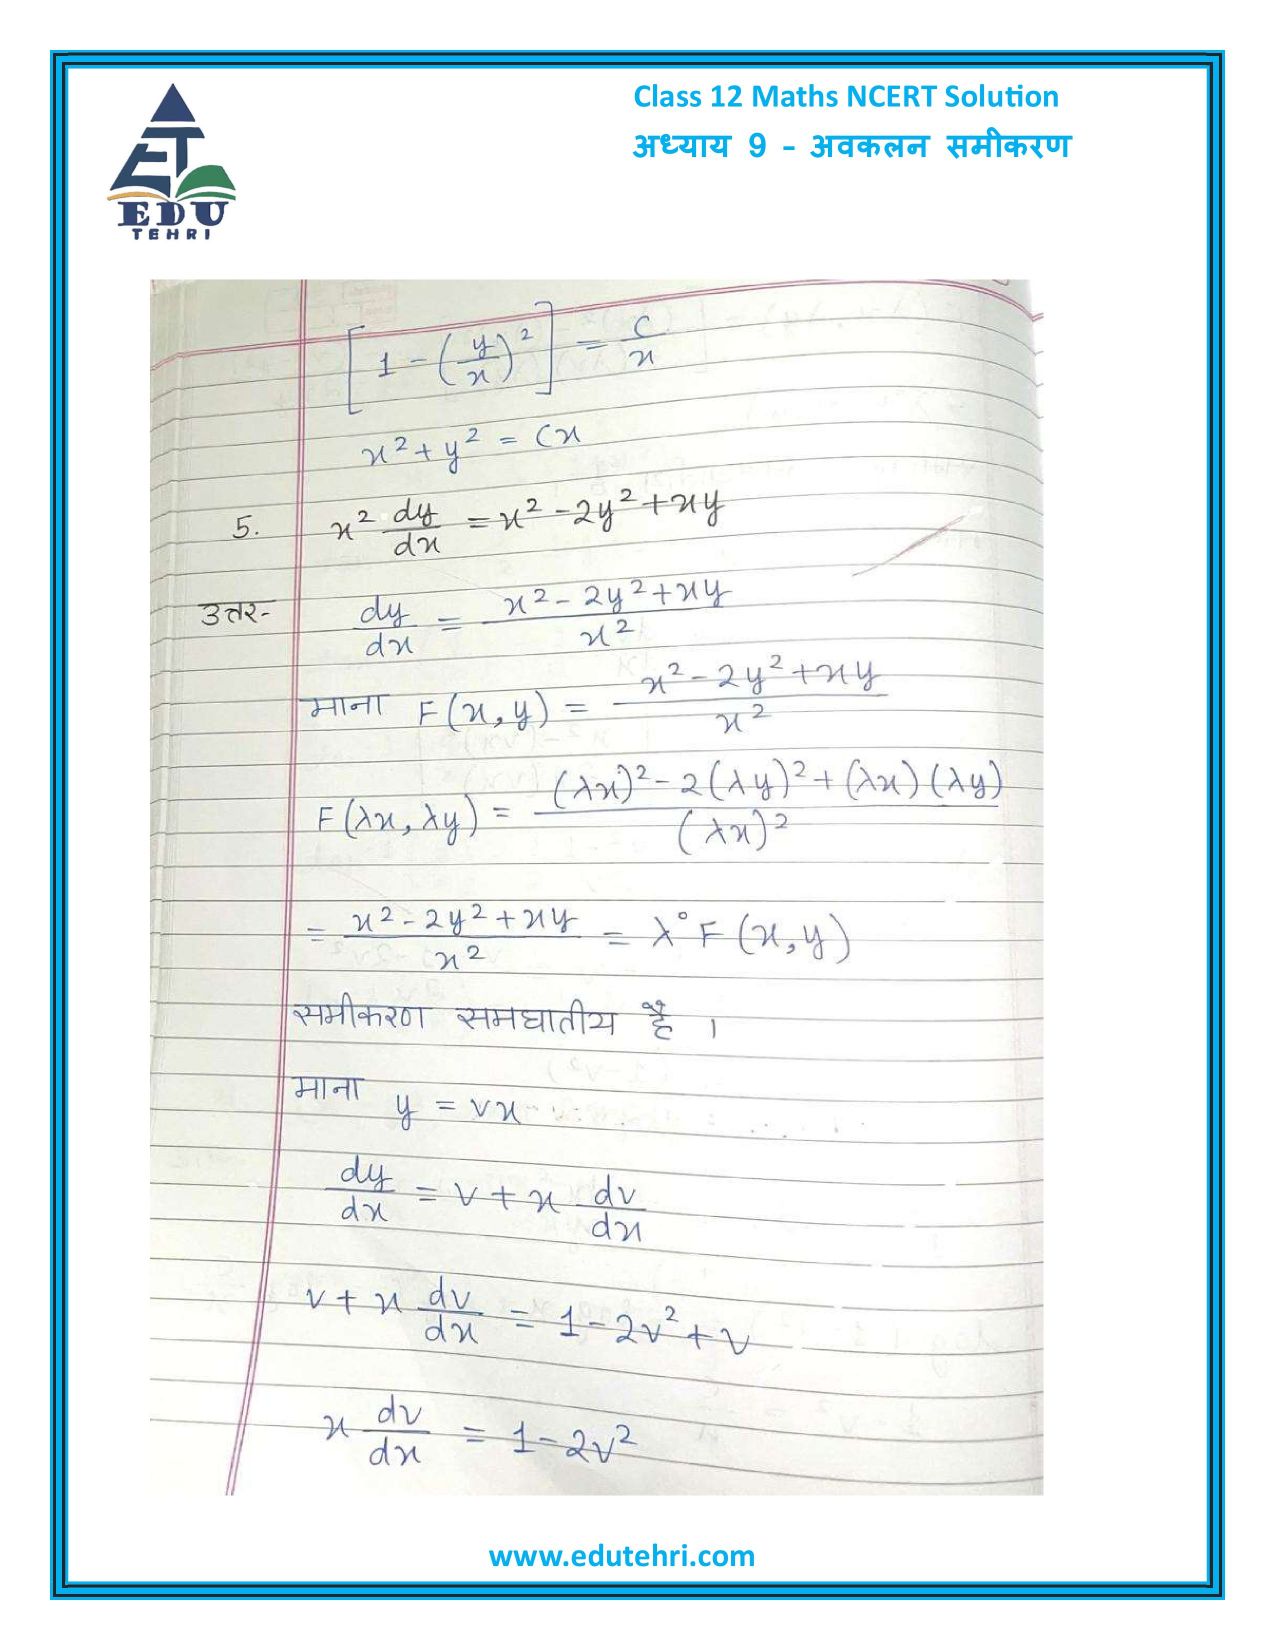 EDU
TEHRI
Class 12 Maths NCERT Solution
अध्याय 9 - अवकलन समीकरण
[1 - (y/x)²] = c/x
x² + y² = Cx
5. x² dy/dx = x² - 2y² + xy
उत्तर- dy/dx = (x² - 2y² + xy)/x²
माना F(x, y) = (x² - 2y² + xy)/x²
F(λx, λy) = ((λx)² - 2(λy)² + (λx)(λy))/(λx)²
= (x² - 2y² + xy)/x² = λ° F(x, y)
समीकरण समघातीय है ।
माना y = vx
dy/dx = v + x dv/dx
v + x dv/dx = 1 - 2v² + v
x dv/dx = 1 - 2v²
www.edutehri.com